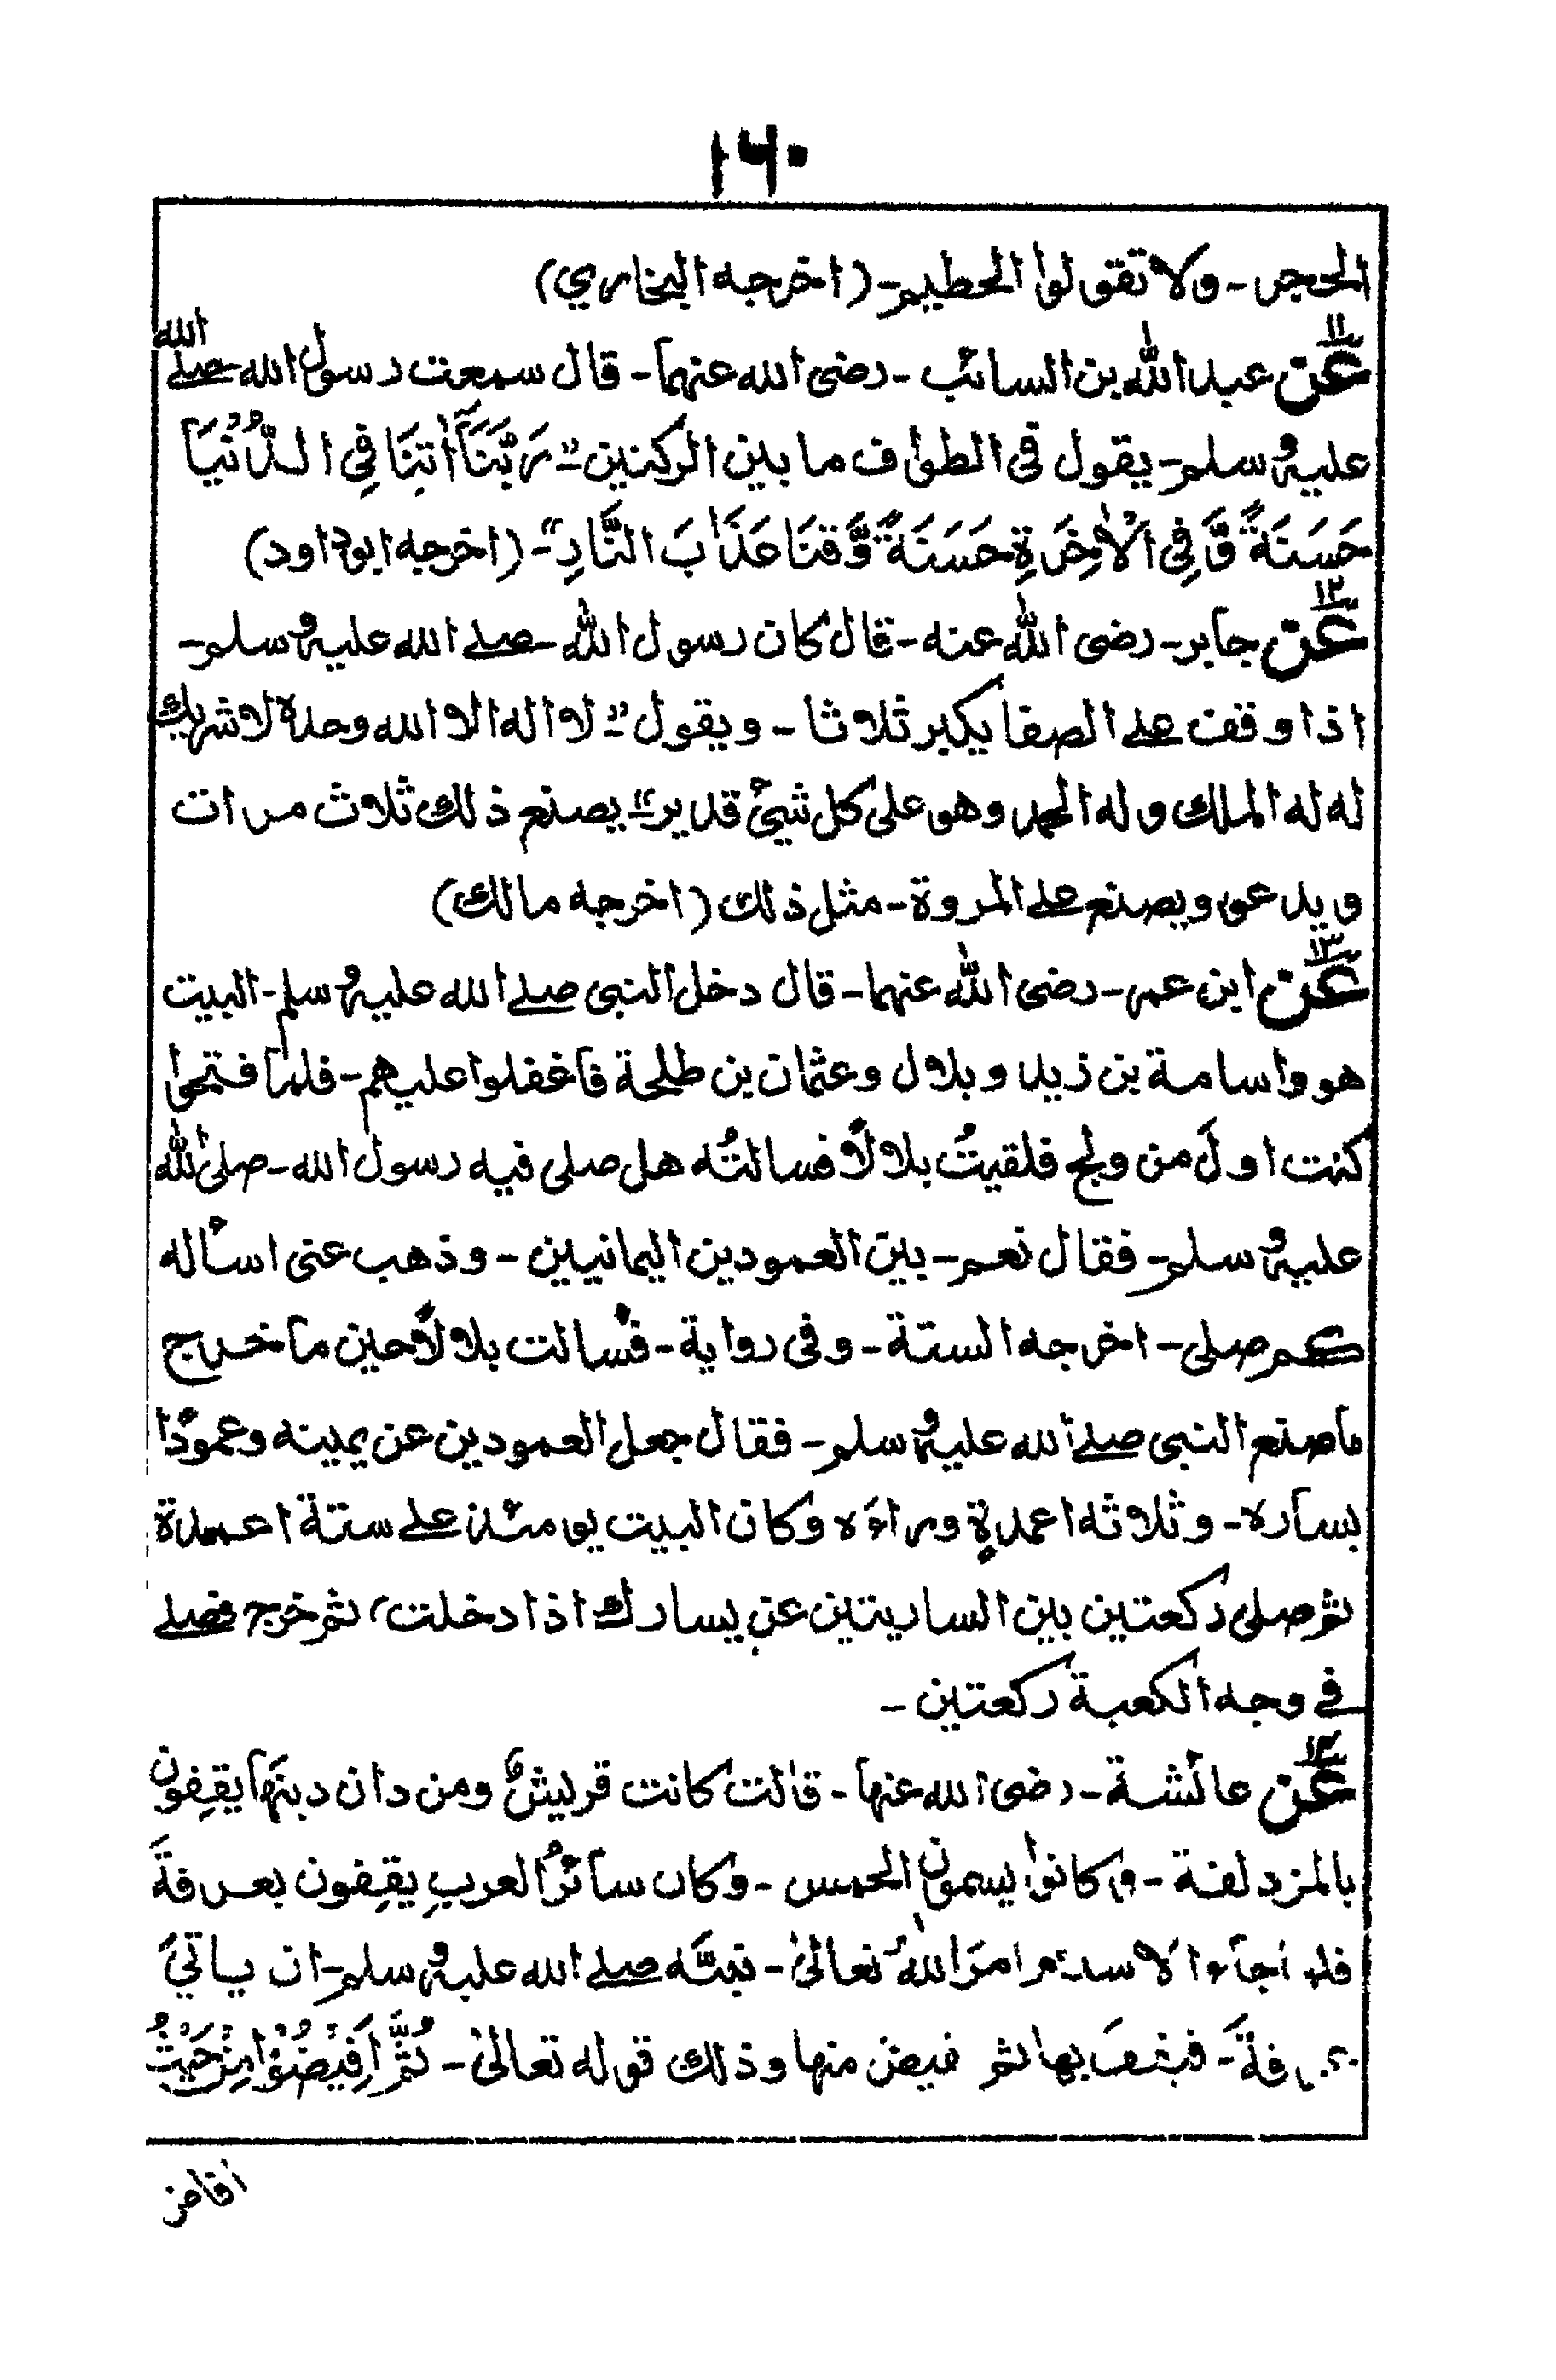 ١٦٠
الحجر - ولا تقولوا الحطيم - (اخرجه البخاري)
١١ عن عبد الله بن السائب - رضى الله عنهما - قال سمعت رسول الله صلے الله
عليه وسلم - يقول فى الطواف ما بين الركنين "رَبَّنَآ اٰتِنَا فِى الدُّنْيَا
حَسَنَةً وَّفِى الْاٰخِرَةِ حَسَنَةً وَّقِنَا عَذَابَ النَّارِ" - (اخرجه ابوداود)
١٢ عن جابر - رضى الله عنه - قال كان رسول الله - صلے الله عليه وسلم -
اذا وقف علے الصفا يكبر ثلاثا - ويقول "لا اله الا الله وحده لا شريك
له له الملك وله الحمد وهو على كل شيئ قدير" يصنع ذلك ثلاث مرات
ويدعو ويصنع علے المروة - مثل ذلك (اخرجه مالك)
١٣ عن ابن عمر - رضى الله عنهما - قال دخل النبى صلے الله عليه وسلم - البيت
هو واسامة بن زيد وبلال وعثمان بن طلحة فاغفلوا عليهم - فلما فتحوا
كنت اولَ من ولج فلقيتُ بلالًا فسالتُه هل صلى فيه رسول الله - صلى الله
عليه وسلم - فقال نعم - بين العمودين اليمانيين - وذهب عنى اسأله
كم صلى - اخرجه الستة - وفى رواية - فسألت بلالًا حين ما خرج
ما صنع النبى صلے الله عليه وسلم - فقال جعل العمودين عن يمينه وعمودًا
بساره - وثلاثه اعمدةٍ وراءَه وكان البيت يومئذ علے ستة اعمدة
ثم صلى ركعتين بين الساريتين عن يسارك اذا دخلت، ثم خرج فصلے
فى وجه الكعبة ركعتين -
١٤ عن عائشة - رضى الله عنها - قالت كانت قريشٌ ومن دان دينَها يقِفون
بالمزدلفة - وكانوا يسمون الحمس - وكان سآئرُ العربِ يقِفون بعرفةَ
جآء الاسلام امرَ اللهُ تعالىٰ - نبيَّه صلے الله عليه وسلم - ان ياتيَ
فيقفَ بها ثم يفيض منها وذلك قوله تعالىٰ - ثُمَّ اَفِيْضُوْا مِنْ حَيْثُ
افاض